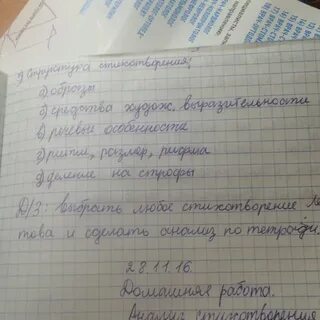 7) Структура стихотворения:
а) образы
б) средства худож. выразительности
в) речевые особенности
г) ритм, размер, рифма
д) деление на строфы
Д/З: Выбрать любое стихотворение Ле
това и сделать анализ по тетради.
28.11.16.
Домашняя работа.
Анализ стихотворения